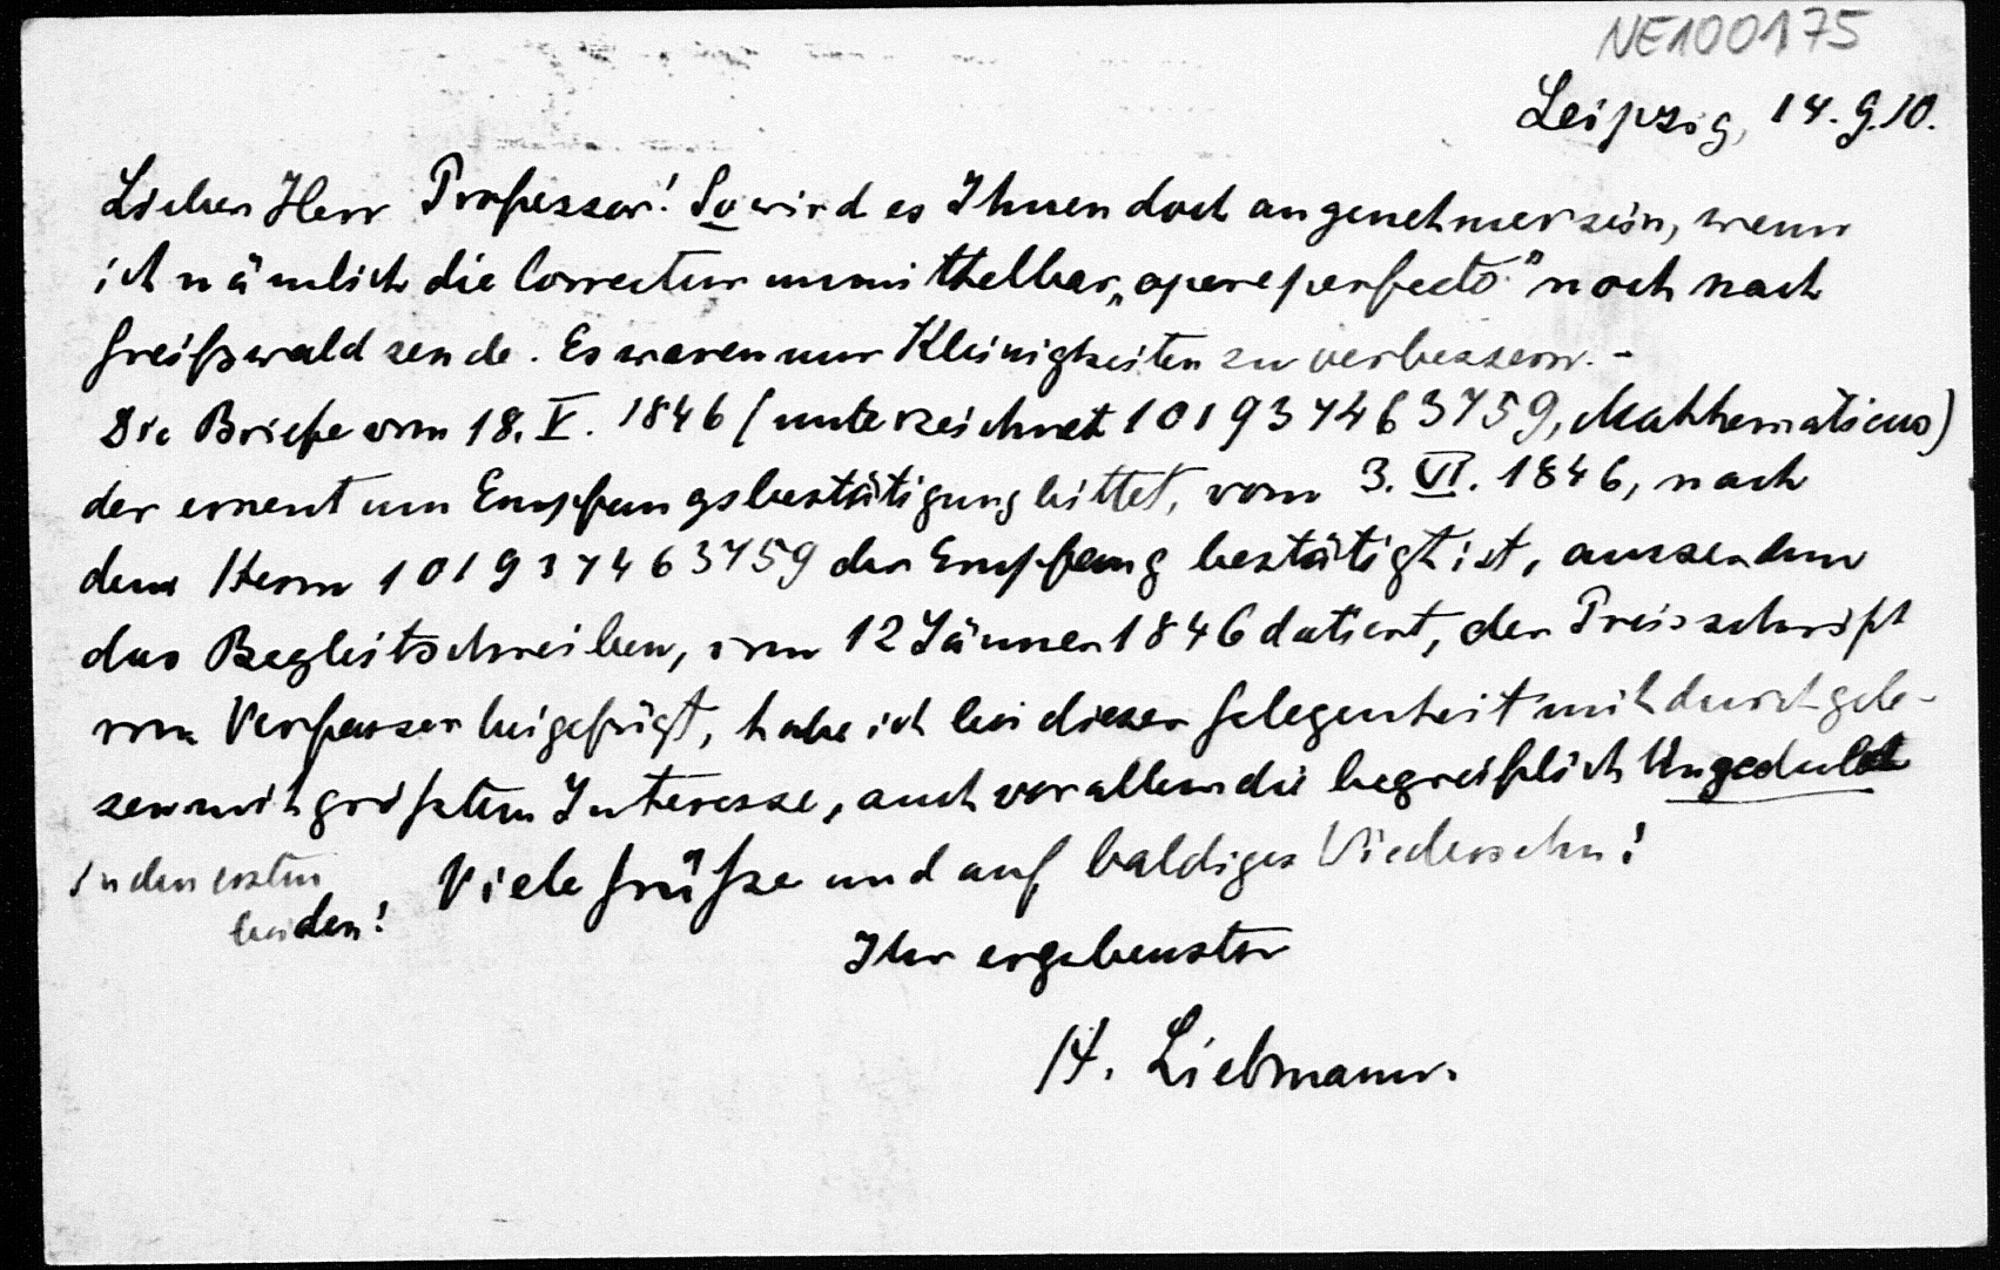 NE100175
Leipzig, 14. 9. 10.
Lieber Herr Professor! So wird es Ihnen doch angenehmer sein, wenn
ich nämlich die Correctur unmitthelbar „opere perfecto“ noch nach
Greifswald sende. Es waren nur Kleinigkeiten zu verbessern. –
Die Briefe vom 18. V. 1846 (unterzeichnet 101937463759, Mathematicus)
der erneut um Empfangsbestätigung bittet, vom 3. VI. 1846, nach
dem Herrn 101937463759 der Empfang bestätigt ist, ausserdem
das Begleitschreiben, vom 12 Jänner 1846 datiert, der Preisschrift
vom Verfasser beigefügt, habe ich bei dieser Gelegenheit mit durchgele-
sen mit größtem Interesse, auch vor allem die begreiflich Ungeduld
in den ersten
beiden!
Viele Grüße und auf baldiges Wiedersehn!
Ihr ergebenster
H. Liebmann.